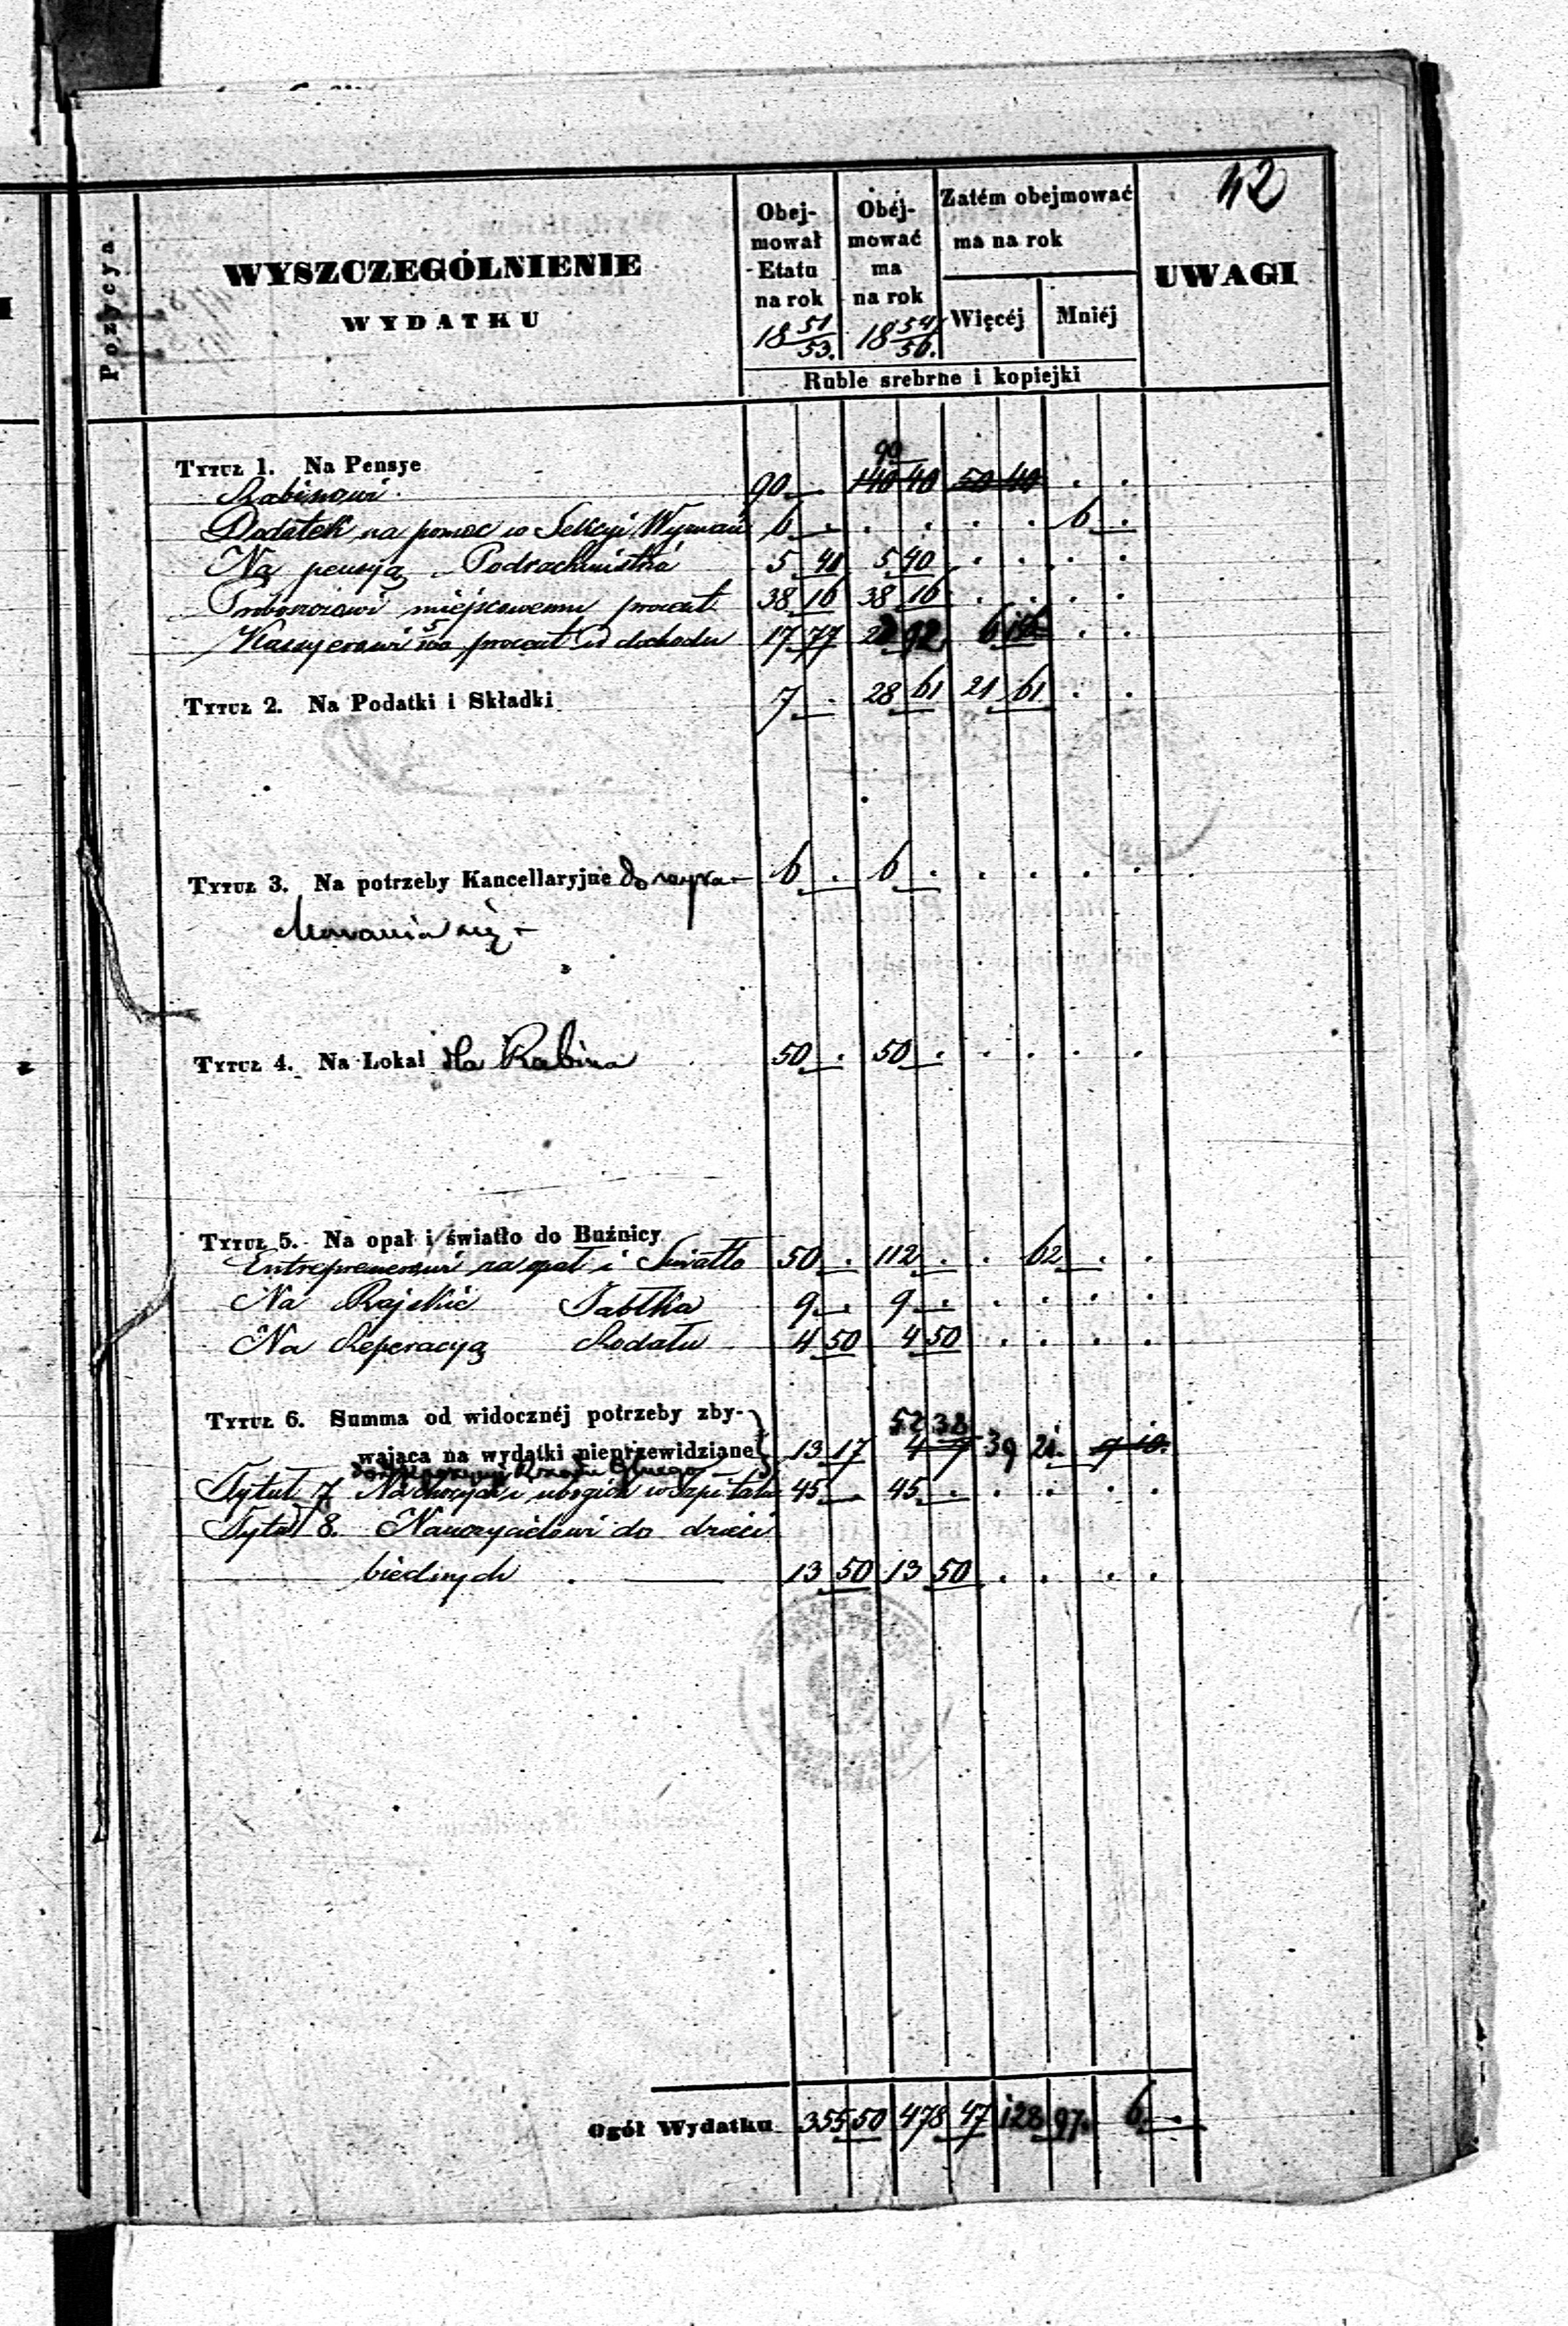 42
Pozycya
WYSZCZEGÓLNIENIE
WYDATKU
Obej-
mował
Etatu
na rok
18 51/53.
Obéj-
mować
ma
na rok
18 54/56.
Zatém obejmować
ma na rok
Więcéj
Mniéj
UWAGI
Ruble srebrne i kopiejki
TYTUŁ 1. Na Pensye
90
Rabinowi 90 . 140 40 50 40 . .
Dodatek na pomoc w Sekcyi 6 . . . . . 6 .
Na pensyą Podrachmistrza 5 40 5 40 . . . .
Poborcowi miejscowemu procent 38 16 38 16 . . . .
Kassyerowi 5 procent od dochodu 17 77 92 6 . .
TYTUŁ 2. Na Podatki i Składki 7 . 28 61 21 61 . .
TYTUŁ 3. Na potrzeby Kancellaryjne do wyra- 6 . 6 . . . . .
chowania się
TYTUŁ 4. Na Lokal dla Rabina 50 . 50 . . . . .
TYTUŁ 5. Na opał i światło do Buźnicy
Entreprenerowi za opał i Swiatło 50 . 112 . . 62 . .
Na Rajskie Jabłka 9 . 9 . . . . .
Na Reperacyą Rodału 4 50 4 50 . . . .
TYTUŁ 6. Summa od widocznéj potrzeby zby-
52 38
wająca na wydatki nieprzewidziane 13 17 4 9 39 21 9 10.
Tytuł 7 Na chorych i ubogich w Szpitalu 45 . 45 . . . . .
Tytuł 8. Nauczycielowi do dzieci
biednych 13 50 13 50 . . . .
Ogół Wydatku 355 50 478 47 128 97. 6 .